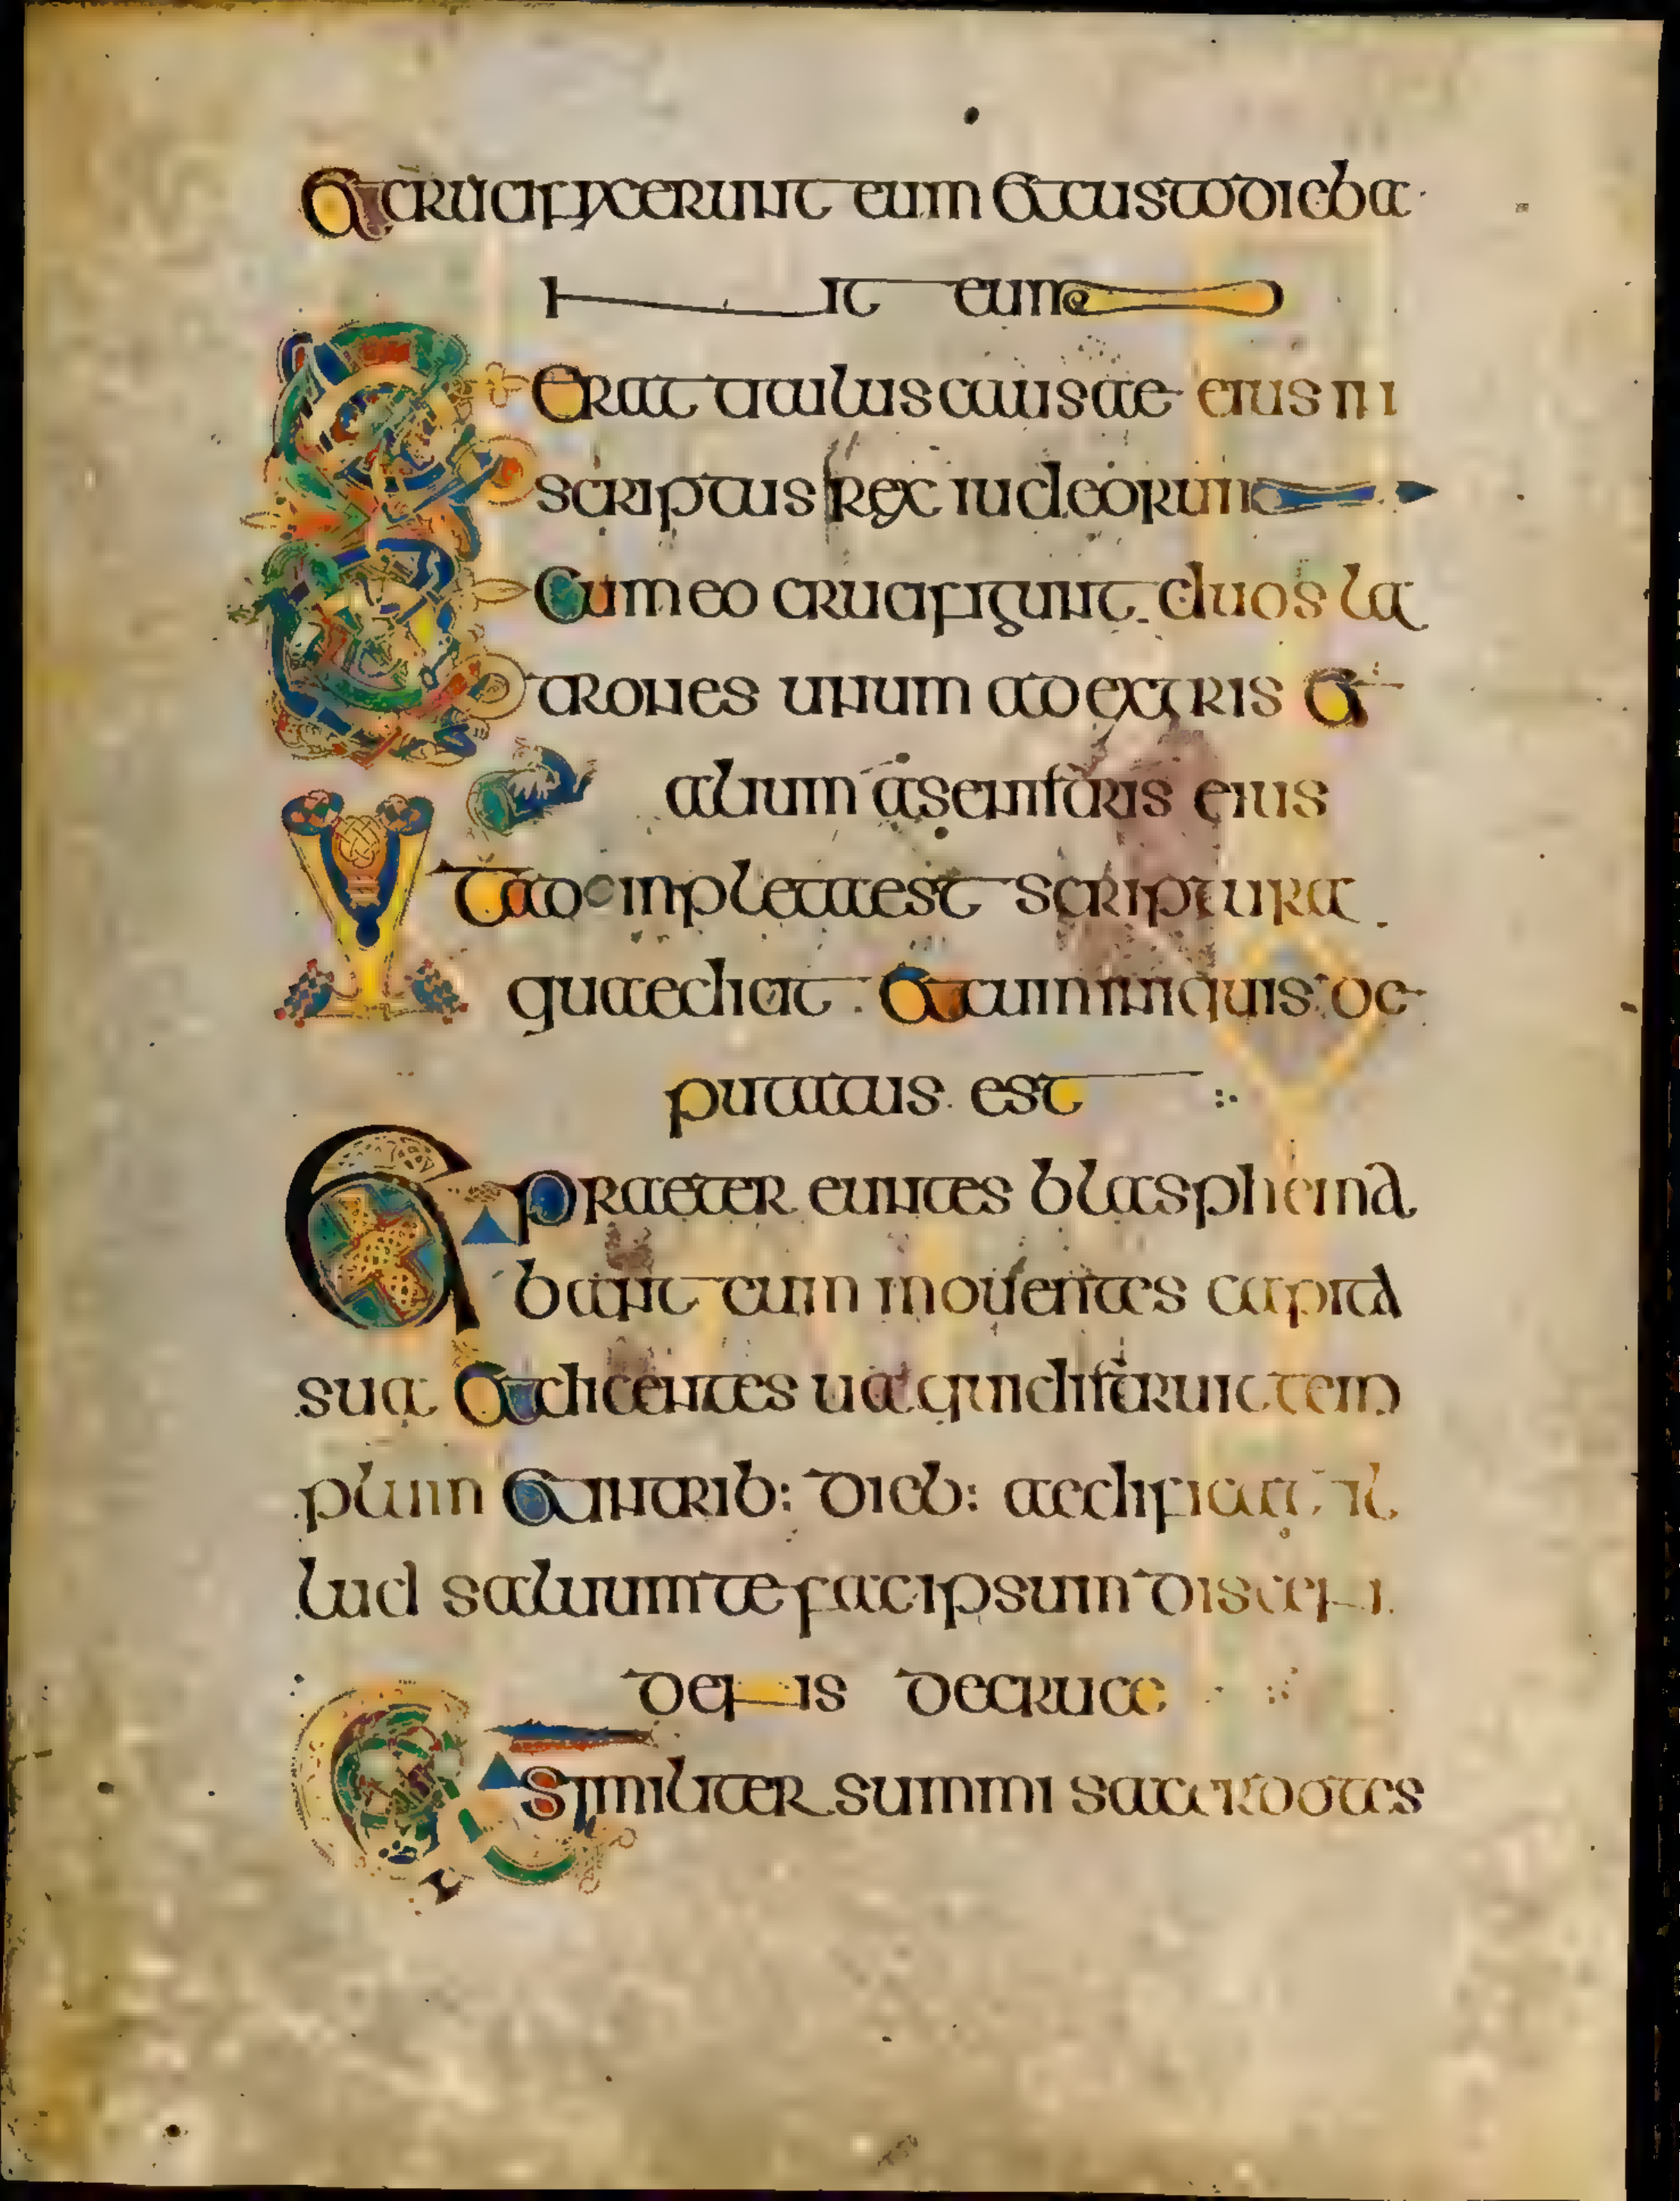 Et crucifixerunt eum et custodieba
nt eum
Et erat titulus causae eius ni
scriptus rex iudeorum
Et cum eo crucifigunt duos la
trones unum ad extris et
alium a senistris eius
Ut adinpleta est scriptura
quae dicit et cum iniquis oc
putatus est
Et praeter euntes blasphema
bant eum mouentes capita
sua et dicentes ua qui distruit tem
plum et in trib: dieb: aedificat il
lud saluum te fac ipsum discen
dens de cruce
Et similiter summi sacerdotes